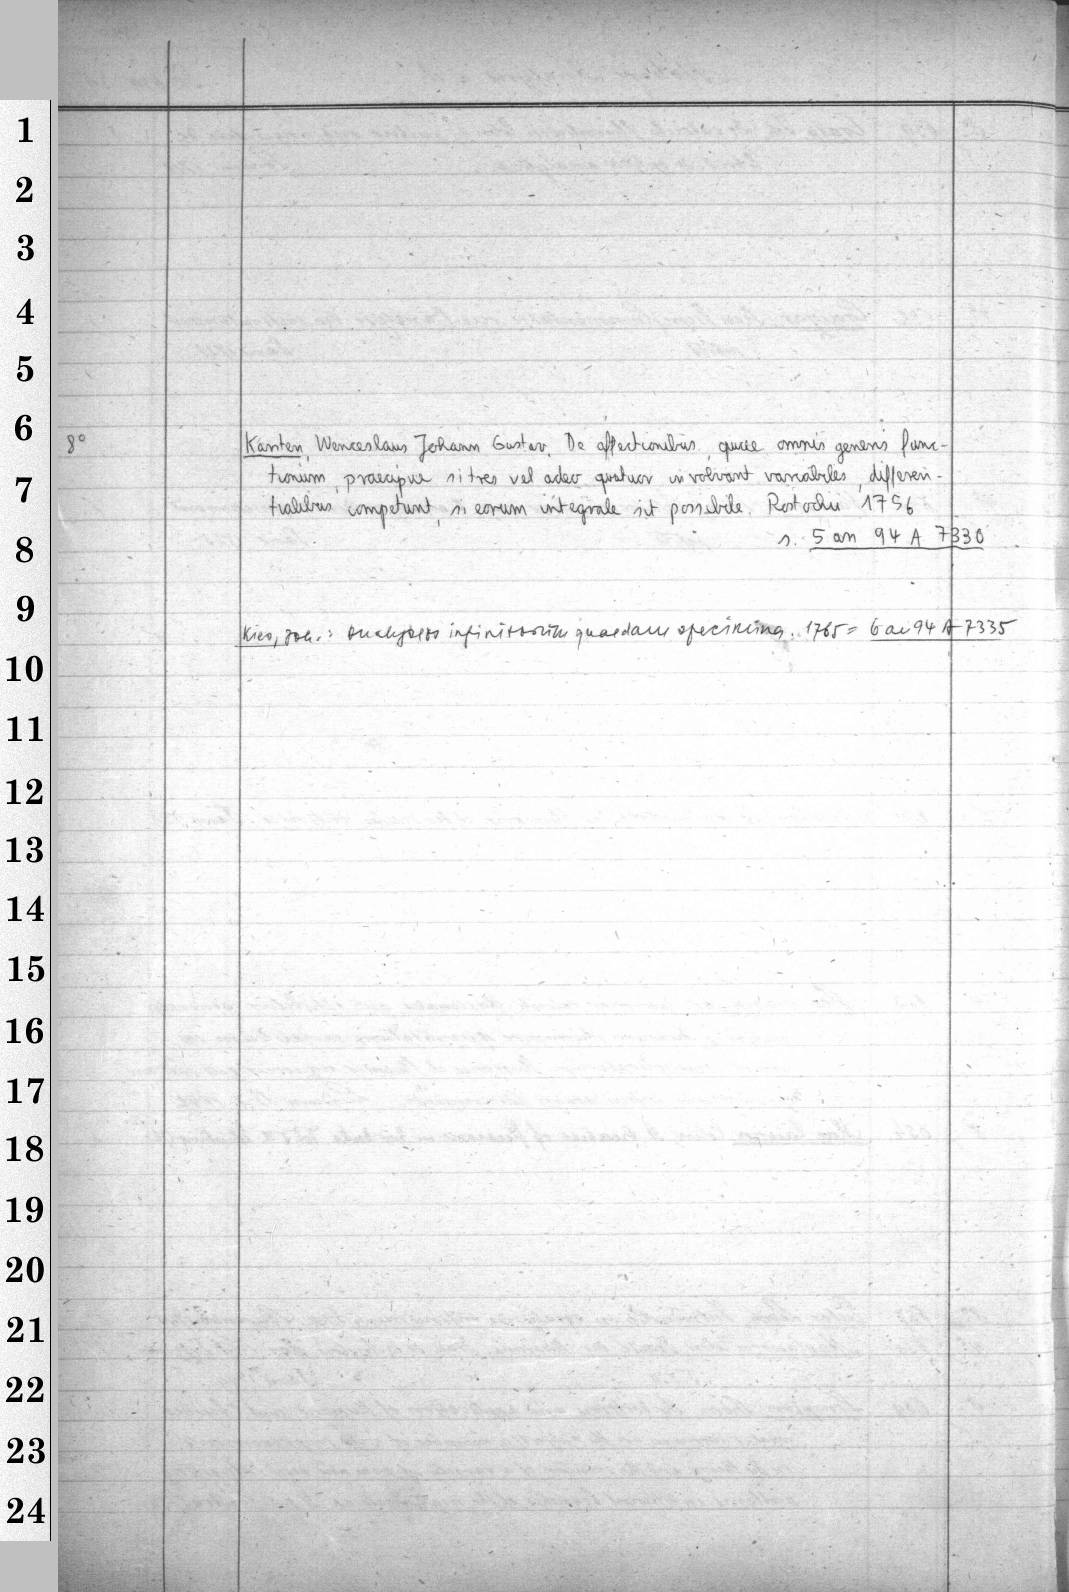 1
2
3
4
5
6
8° Karsten, Wenceslaus Johann Gustav. De affectionibus, quae omnis generis func-
7
tionum, praecipue si tres vel adeo quatuor involvant variabiles, differen-
tialibus competunt, si eorum integrale sit possibile. Rostochii 1756
8
s. 5 an 94 A 7330
9
Kies, Joh.: Analyseos infinitorum quaedam specimina. 1765 = 6 an 94 A 7335
10
11
12
13
14
15
16
17
18
19
20
21
22
23
24